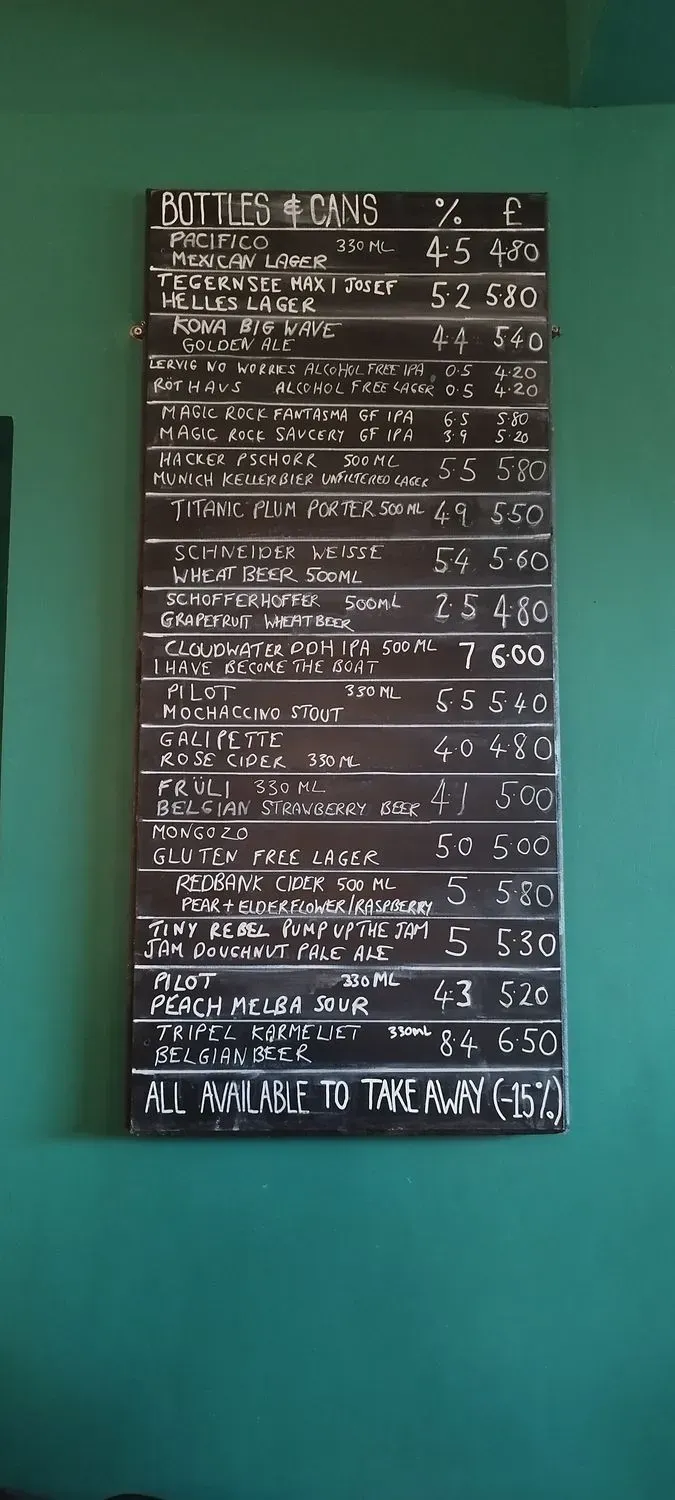 BOTTLES & CANS % £
PACIFICO 330 ML 4.5 4.80
MEXICAN LAGER
TEGERNSEE MAX I JOSEF 5.2 5.80
HELLES LAGER
KONA BIG WAVE 4.4 5.40
GOLDEN ALE
LERVIG NO WORRIES ALCOHOL FREE IPA 0.5 4.20
ROTHAUS ALCOHOL FREE LAGER 0.5 4.20
MAGIC ROCK FANTASMA GF IPA 6.5 5.80
MAGIC ROCK SAUCERY GF IPA 3.9 5.20
HACKER PSCHORR 500 ML 5.5 5.80
MUNICH KELLERBIER UNFILTERED LAGER
TITANIC PLUM PORTER 500 ML 4.9 5.50
SCHNEIDER WEISSE 5.4 5.60
WHEAT BEER 500ML
SCHOFFERHOFFER 500ML 2.5 4.80
GRAPEFRUIT WHEATBEER
CLOUDWATER DDH IPA 500 ML 7 6.00
I HAVE BECOME THE BOAT
PILOT 330 ML 5.5 5.40
MOCHACCINO STOUT
GALIPETTE 4.0 4.80
ROSE CIDER 330 ML
FRÜLI 330 ML 4.1 5.00
BELGIAN STRAWBERRY BEER
MONGOZO 5.0 5.00
GLUTEN FREE LAGER
REDBANK CIDER 500 ML 5 5.80
PEAR + ELDERFLOWER/RASPBERRY
TINY REBEL PUMP UP THE JAM 5 5.30
JAM DOUGHNUT PALE ALE
PILOT 330 ML 4.3 5.20
PEACH MELBA SOUR
TRIPEL KARMELIET 330ML 8.4 6.50
BELGIAN BEER
ALL AVAILABLE TO TAKE AWAY (-15%)